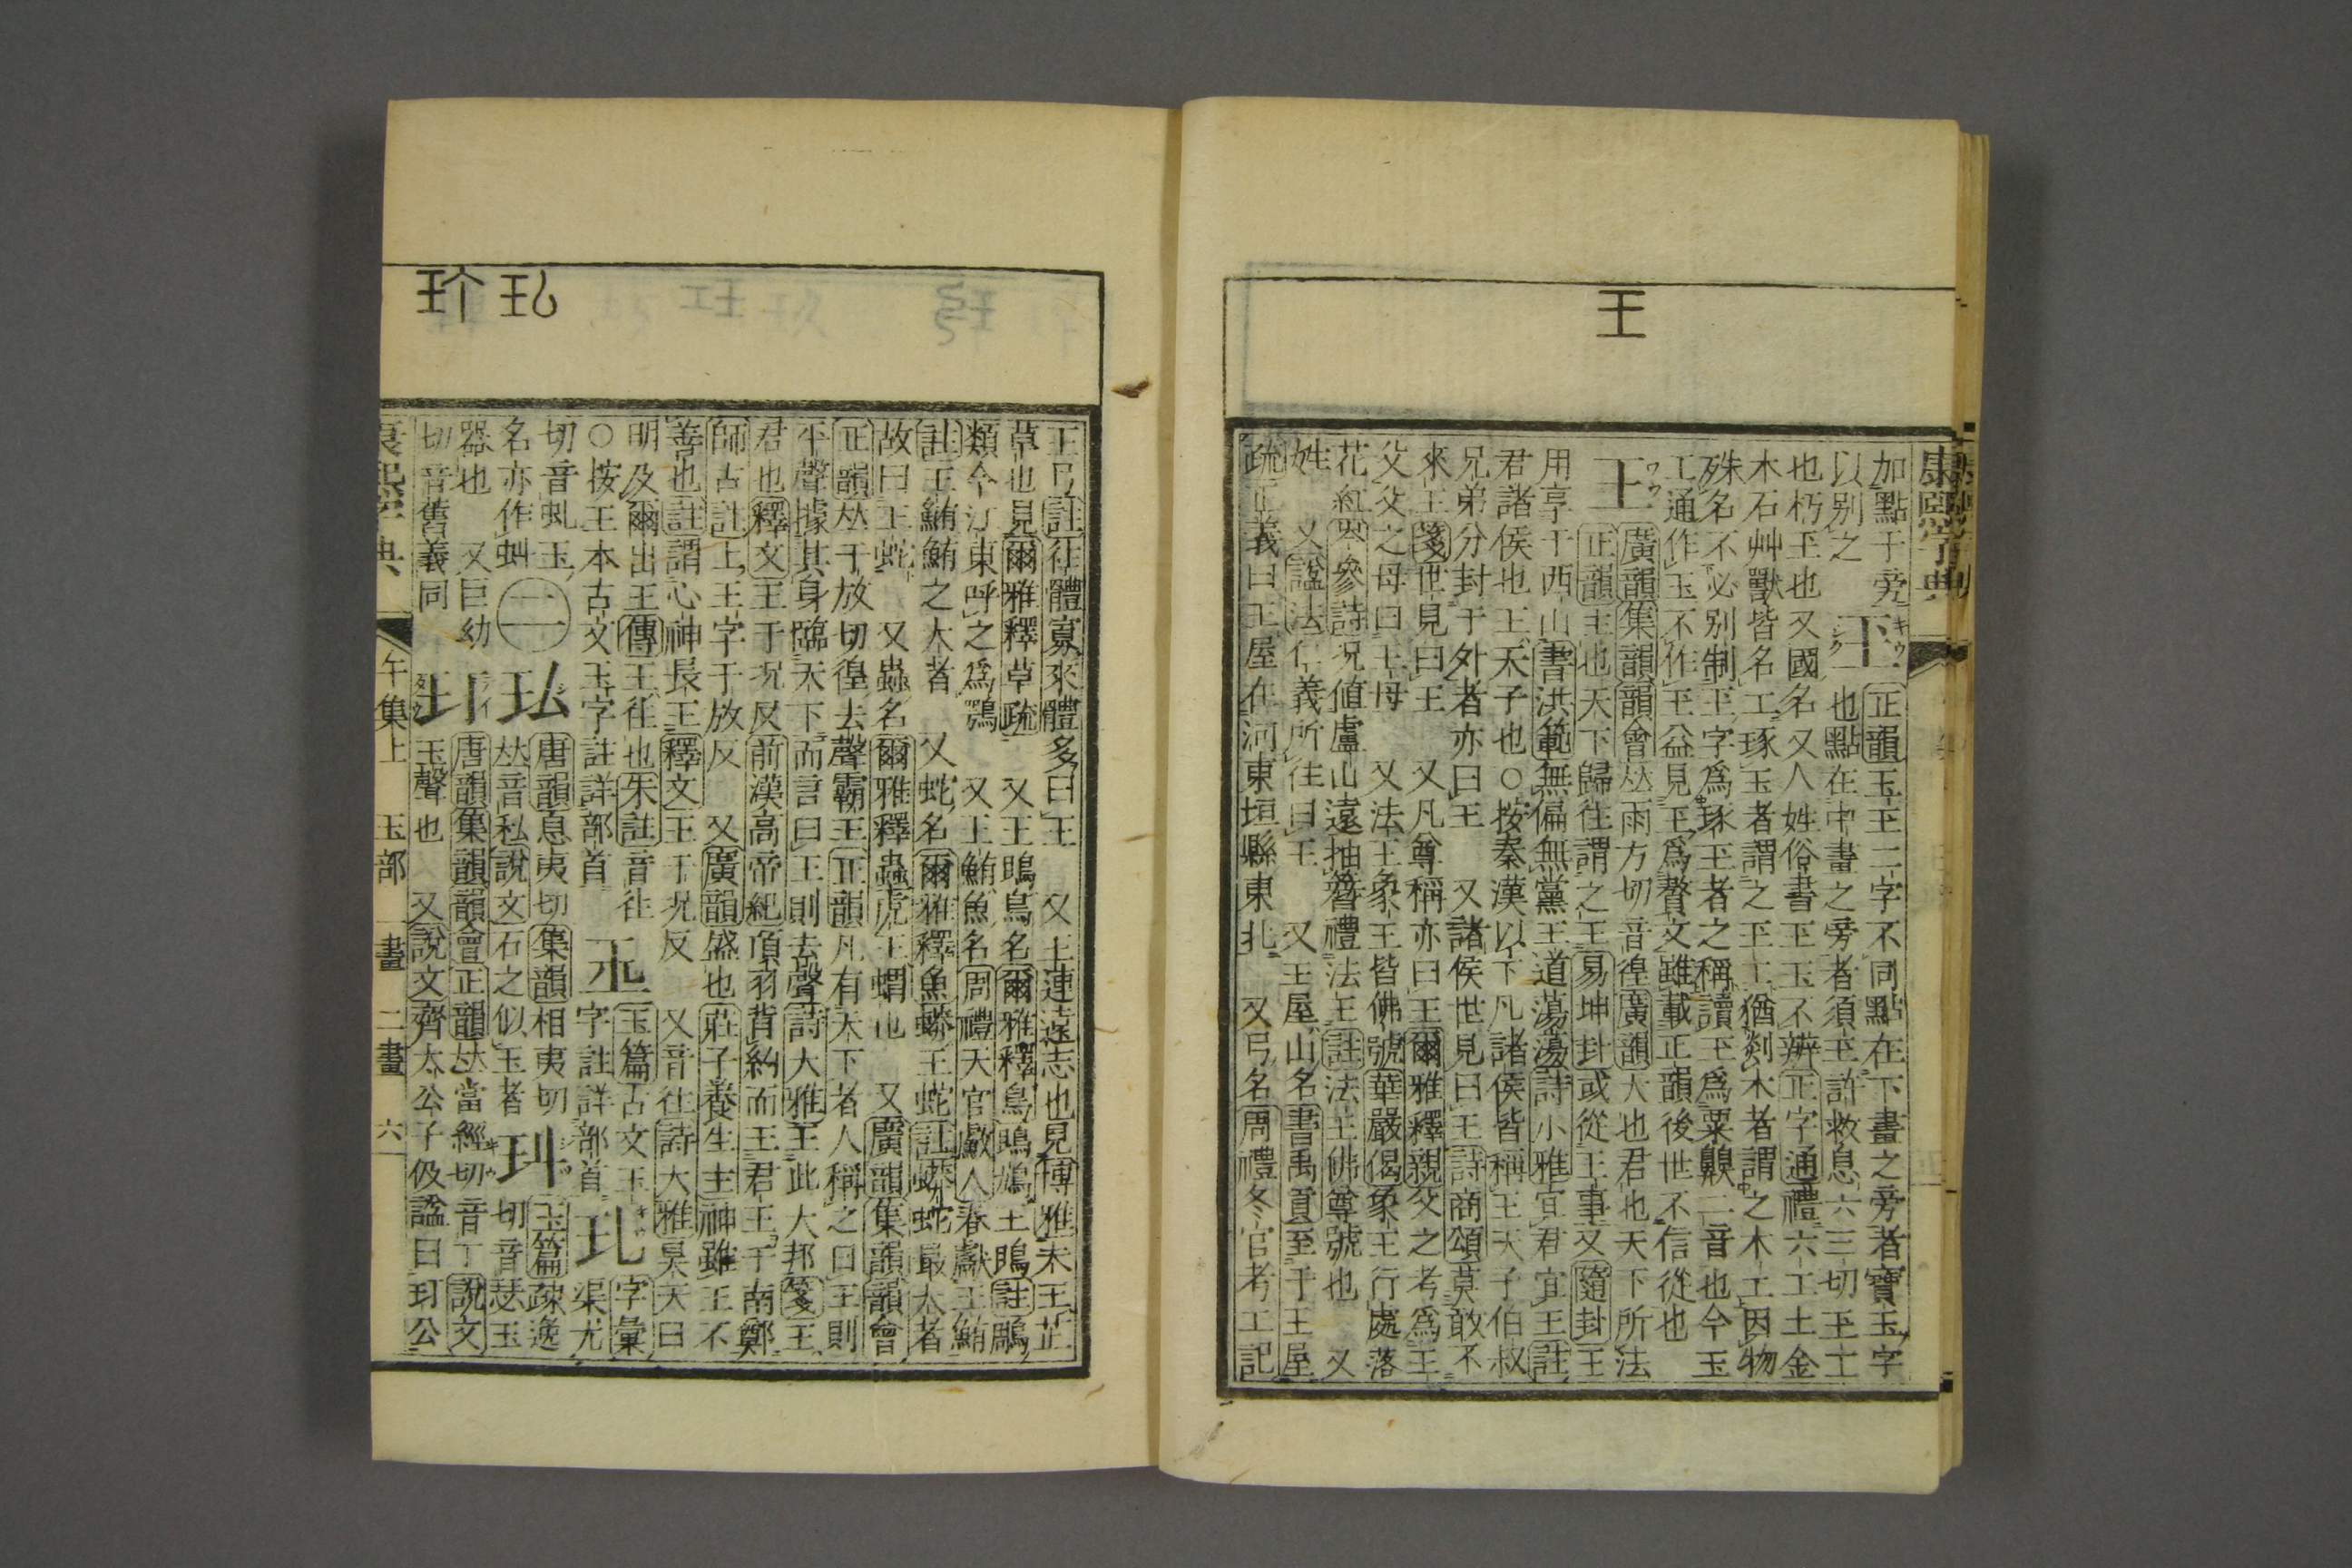 王
康熙字典
加點于旁以別之
玊
キウ
シク
正韻玉玊二字不同點在下畫之旁者寶玉字
也點在中畫之旁者須玊許救息六三切玊工
也朽玊也又國名又人姓俗書玊玉不辨正字通禮六工土金
木石艸獸皆名工琢玉者謂之玊工猶剡木者謂之木工因物
殊名不必別制玊字爲琢玊者之稱讀玊爲粟䶈二音也今玉
工通作玉不作玊益見玊爲贅文雖載正韻後世不信從也
王
ワウ
廣韻集韻韻會𠀤雨方切音徨廣韻大也君也天下所法
正韻主也天下歸往謂之王易坤卦或從王事又隨卦王
用亨于西山書洪範無偏無黨王道蕩蕩詩小雅宜君宜王註
君諸侯也王天子也○按秦漢以下凡諸侯皆稱王天子伯叔
兄弟分封于外者亦曰王 又諸侯世見曰王詩商頌莫敢不
來王箋世見曰王 又凡尊稱亦曰王爾雅釋親父之考爲王
父父之母曰王母 又法王象王皆佛號華嚴偈象王行處落
花紅岑參詩況値盧山遠抽簪禮法王註法王佛尊號也 又
姓 又諡法仁義所往曰王 又王屋山名書禹貢至于王屋
疏正義曰王屋在河東垣縣東北 又弓名周禮冬官考工記
王弓註往體寡來體多曰王 又王連遠志也見博雅 又王芷
草也見爾雅釋草疏 又王鴡鳥名爾雅釋鳥鴡鳩王鴡註鵰
類今江東呼之爲鶚 又王鮪魚名周禮天官䱷人春獻王鮪
註王鮪鮪之大者 又蛇名爾雅釋魚蟒王蛇註蟒蛇最大者
故曰王蛇 又蟲名爾雅釋蟲蛗王蝟也 又廣韻集韻韻會
正韻𠀤于放切徨去聲霸王正韻凡有天下者人稱之曰王則
平聲據其身臨天下而言曰王則去聲詩大雅王此大邦箋王
君也釋文王于況反前漢高帝紀項羽背約而王君王于南鄭
師古註上王字于放反 又廣韻盛也莊子養生主神雖王不
善也註謂心神長王釋文王于況反 又音往詩大雅昊天曰
明及爾出王傳王往也朱註音往
○按王本古文玉字註詳部首
𤣪
玉篇古文玉字註詳部首
玌
字彙渠尤
切音虬玉名亦作虯
二
玜
唐韻息夷切集韻相夷切
𠀤音私說文石之似玉者
玣
玉篇疎逸切音瑟玉
器也 又巨幼切音舊義同
玎
唐韻集韻韻會正韻𠀤當經切音丁說文
玉聲也 又說文齊太公子伋諡曰玎公
康熙字典 午集上 玉部 一畫 二畫 六